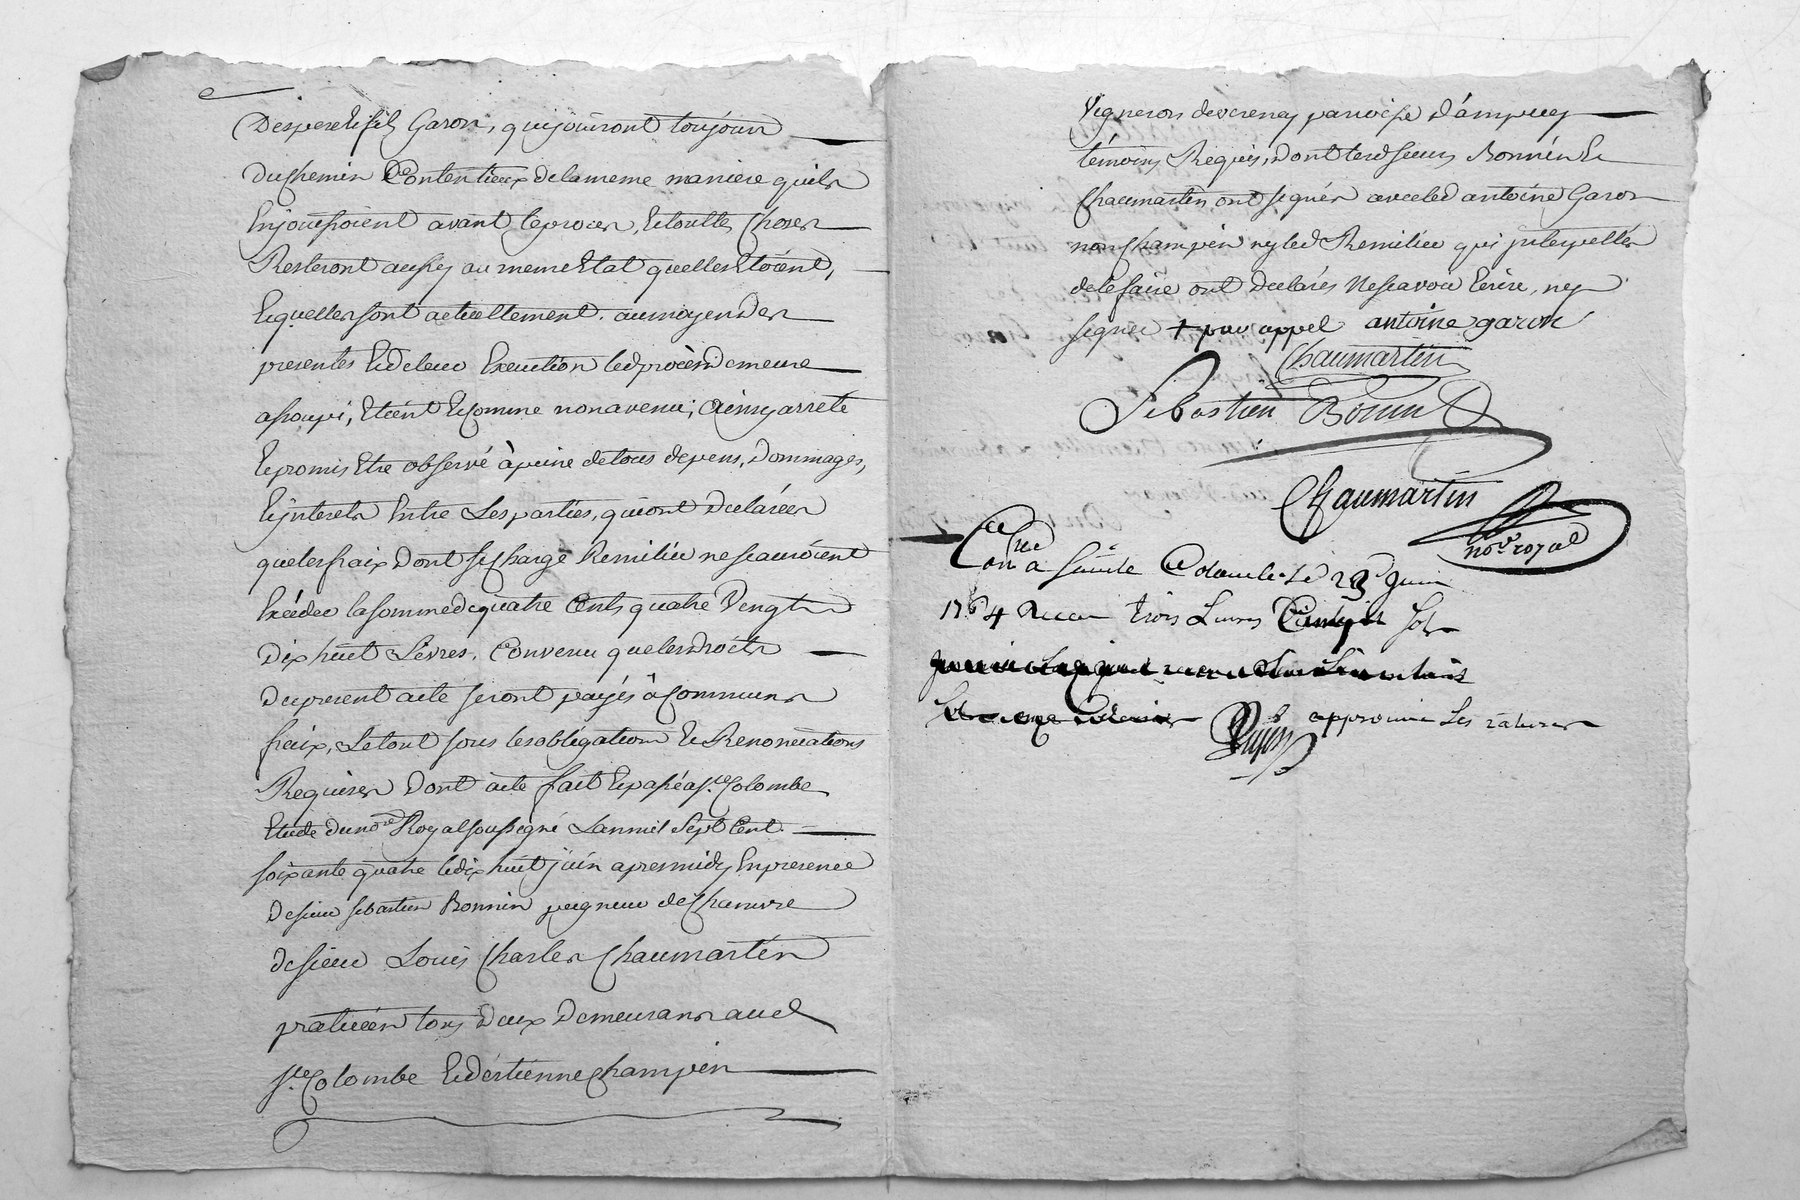 Desperes et fils Garon, qui jouiront toujours
du chemin Contentieux de la meme maniere quils
En jouissoient avant le procès, et toutes choses
Resteront aussy au meme Etat quelles Etoient,
Et quelles sont actuellement. au moyen des
presentes Et de leur Execution led procès demeure
assoupi, Eteint Et comme non avenu; Ainsy arreté
Et promis Etre observé à peine de tous depens, Dommages,
Et jnterets Entre Les parties, qui ont Declarées
que les fraix dont se charge Remilieu ne scauroient
Excéder la somme de quatre Cents quatre Vengts
Dix huit Livres. Convenu que les droits
du present acte seront payés à communs
fraix, Le tout sous les obligations Et Renonciations
Requises Dont acte fait Et passé a Ste Colombe
Etude du no.re Royal soussigné Lan mil Sept Cent
soixante quatre le dix huit juin apres midy En presence
De sieur Sebastien Bonnin peigneur de Chanvre
de sieur Louis Charles Chaumartin
praticien tous deux Demeurans aud
Ste Colombe Et d'estienne Champin
Vigneron de verenay paroisse D'ampuy
témoins Requis, Dont lesd sieurs Bonnin Et
Chaumartin ont signés avec led antoine Garon
non Champin ny led Remilieu qui jnterpellés
de le faire ont declarés Ne scavoir Ecrire, ny
signer + par appel antoine garon
Chaumartin
Sebastien Bonnin
Chaumartin
no.re royal
Con.a Sainte Colombe Le 23 Juin
1764 Recu trois Livres Cinq Sols
approuvé Les ratures